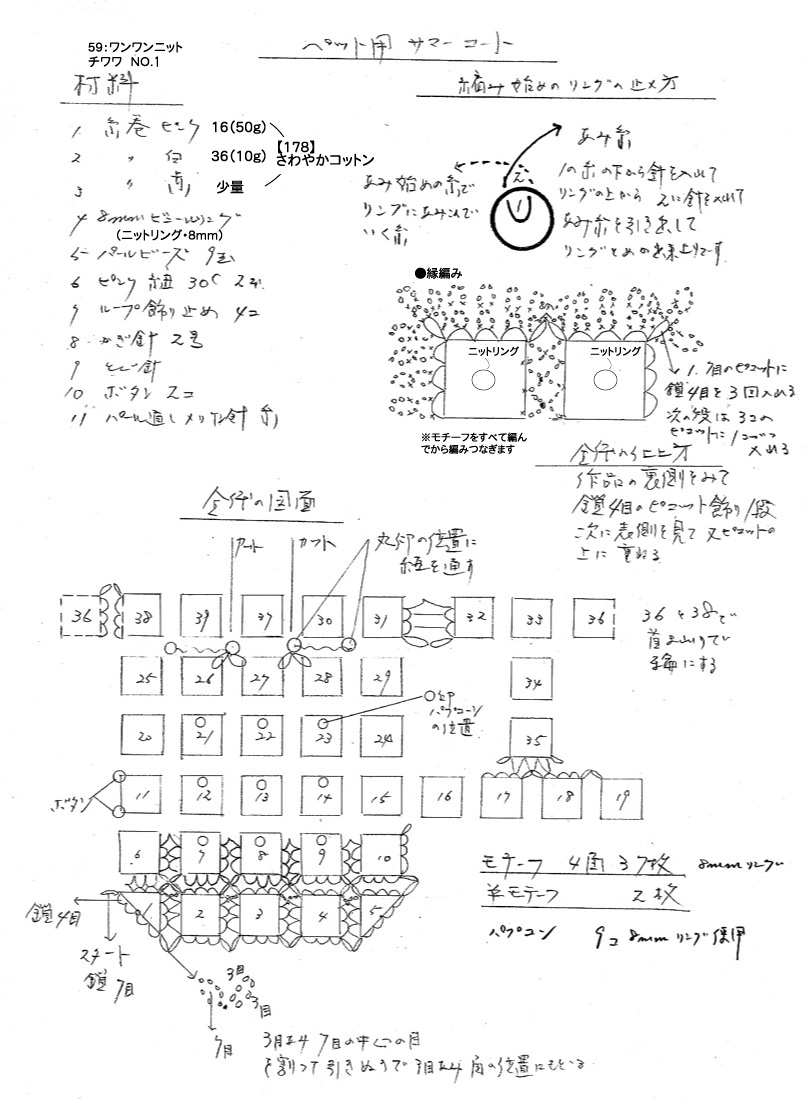 59：ワンワンニット
チワワ NO.1
ペット用 サマーコート
材料
1 糸巻 ピンク 16(50g)
2 〃 白 36(10g)
3 〃 少量
【178】
さわやかコットン
4 8mm ビニールリング
(ニットリング・8mm)
5 パールビーズ 9玉
6 ピンク 紐 30C 2本
7 ループ飾り止め 4コ
8 かぎ針 2号
9 とじ針
10 ボタン 2コ
11 パール通し メリケン針
編み始めのリングの止め方
あみ糸
1の糸の下から針を入れて
リングの上から 2に針を入れて
あみ糸を引き出して
リングとめの出来上りです
あみ始めの糸で
リングにあみこんで
いく糸
1
2
●縁編み
ニットリング
ニットリング
1.
目のピコットに
鎖4目を3回入れる
次の段は3コの
ピコットに1コづつ
入れる
※モチーフをすべて編ん
でから編みつなぎます
全体の仕上方
作品の裏側をみて
鎖4目のピコット飾り1段
次に表側を見て又ピコットの
上に重ねる
全体の図面
カット
カフト
丸印の位置に
紐を通す
36 38 39 37 30 31 32 33 36
36と38で
首まわりで
輪にする
25 26 27 28 29 34
○印
パプコーン
の位置
20 21 22 23 24 35
ボタン
11 12 13 14 15 16 17 18 19
6 7 8 9 10
1 2 3 4 5
モチーフ 4面 37枚 8mmリング
半モチーフ 2枚
パプコン 9コ 8mmリング使用
鎖4目
スタート
鎖7目
3目
3目
7目
3目を4 7目の中心の目
を割って引きぬうで3目を4 角の位置にもどる